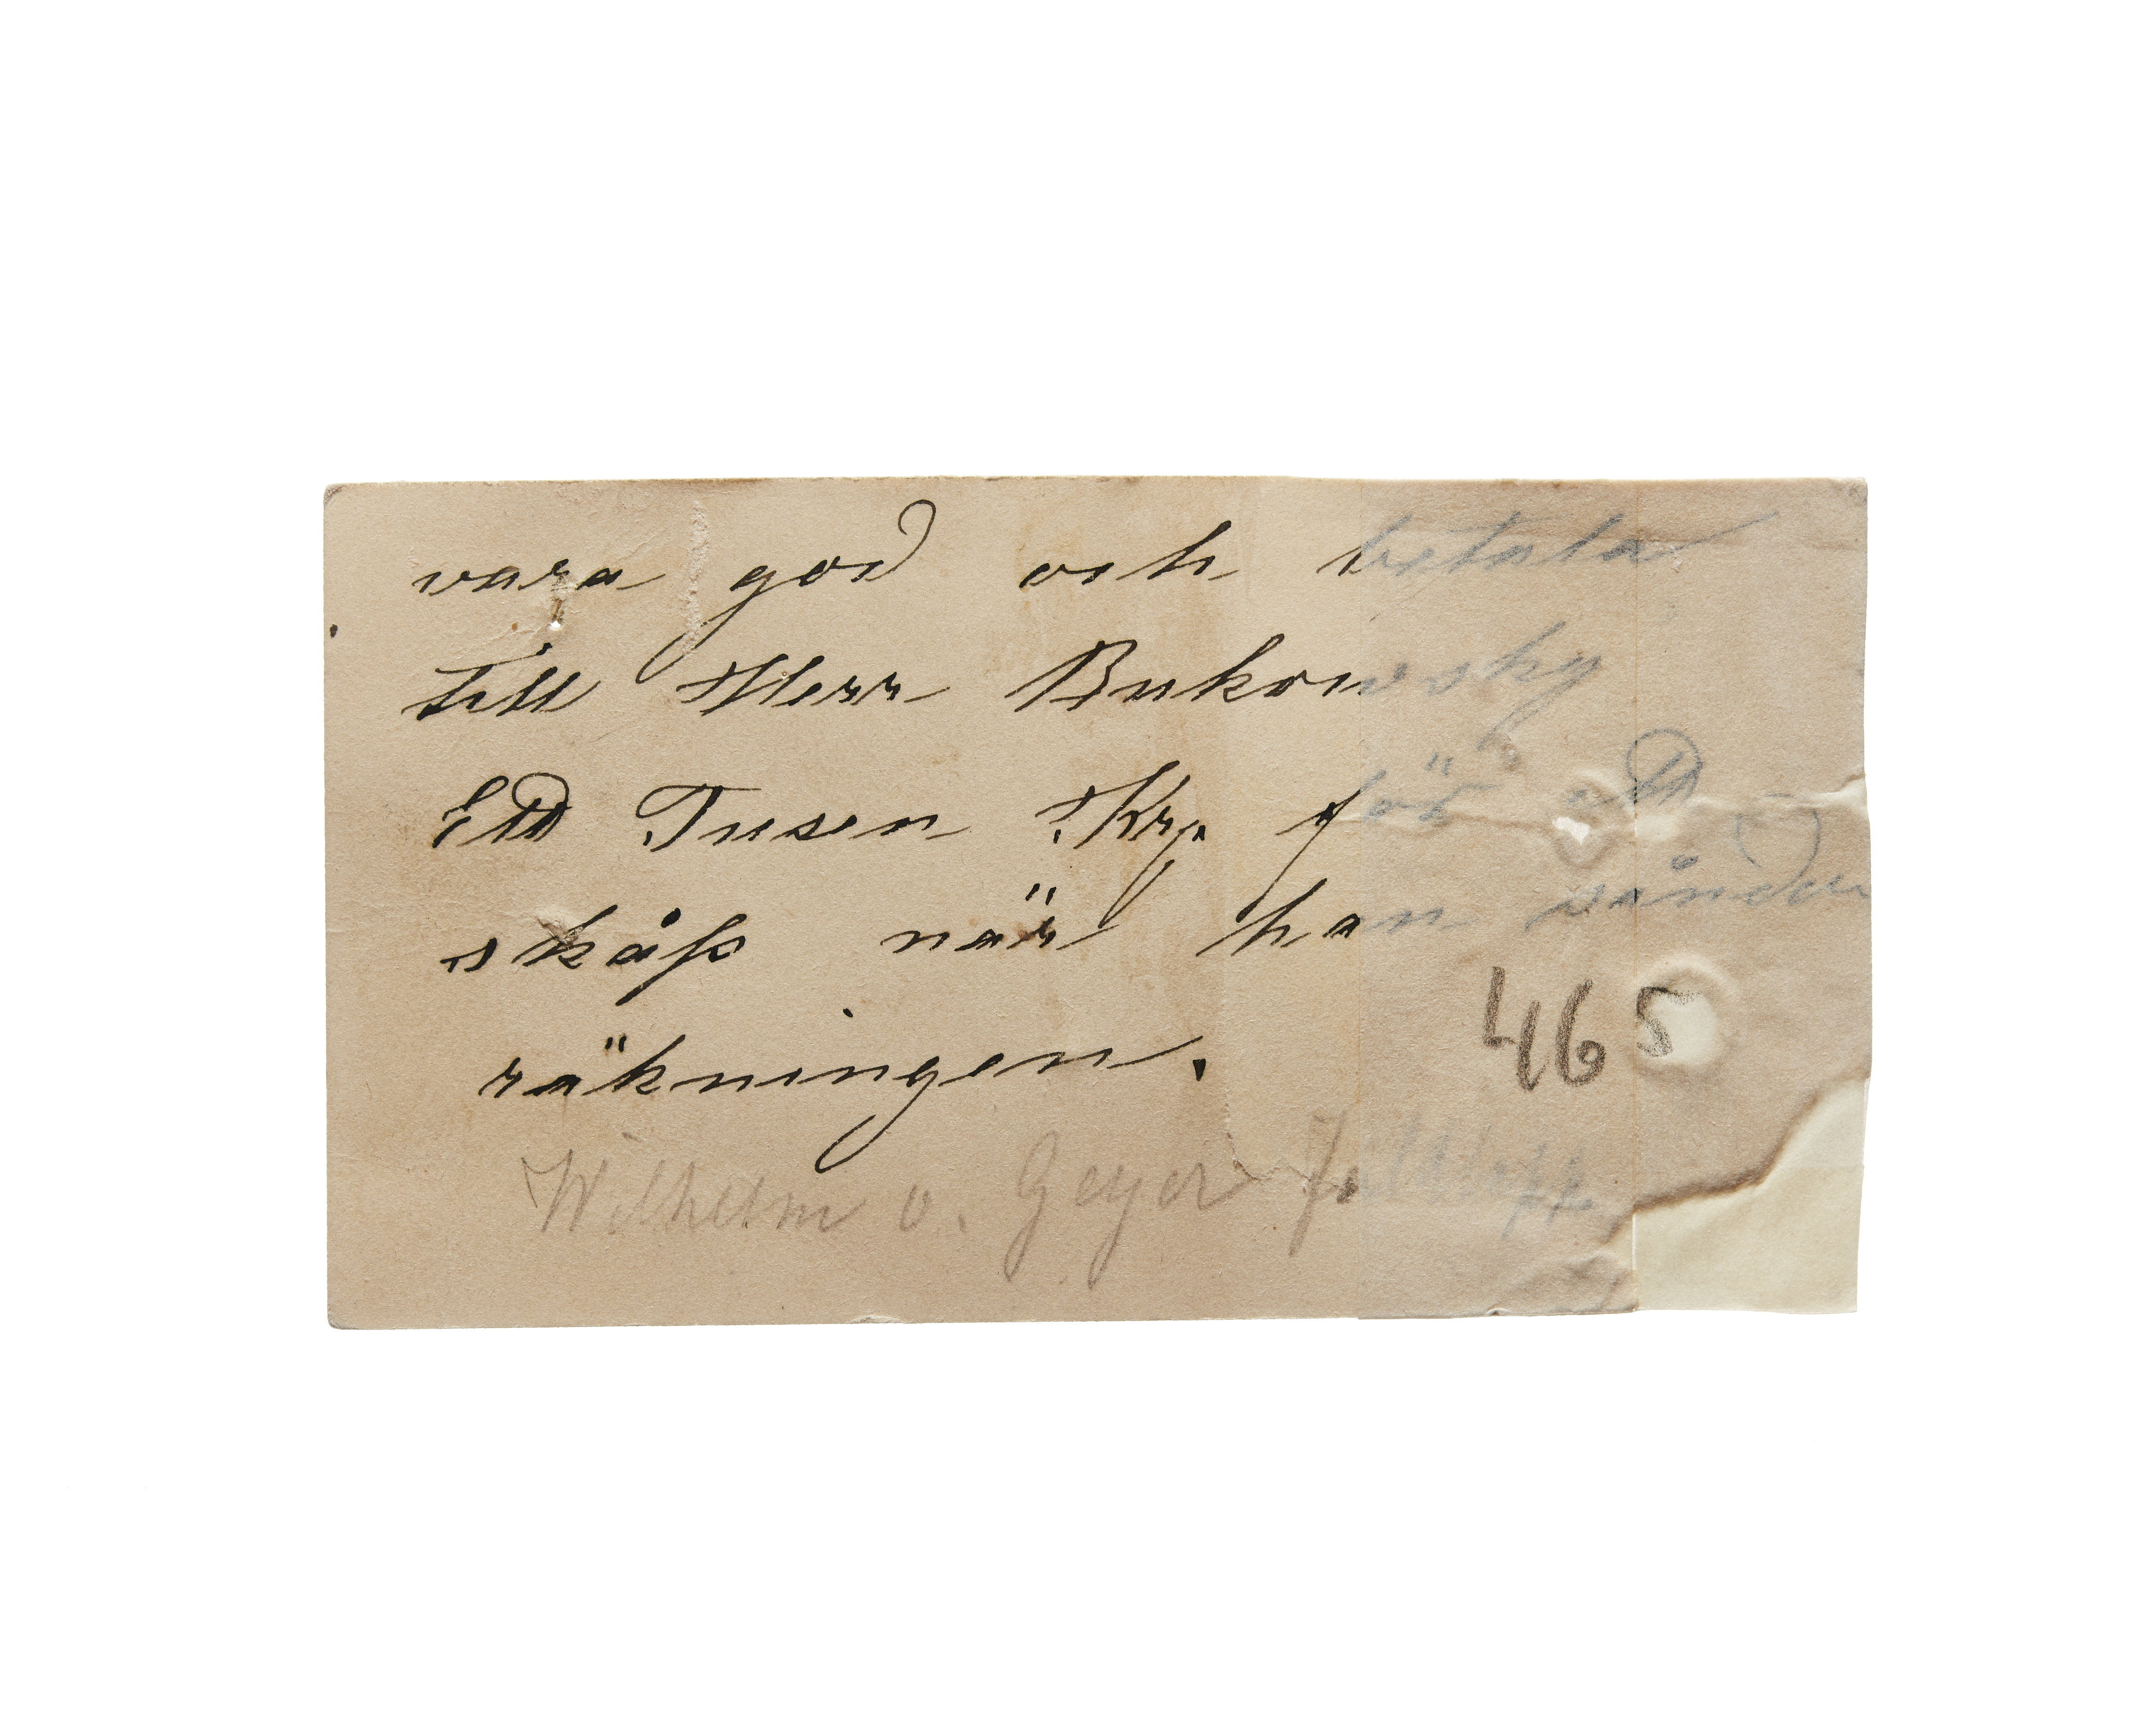 vara god och betala
till Herr Bukowsky
Ett Tusen Kr. för ett
skåp när han sänder
räkningen.
465
Wilhelm v. Geyer